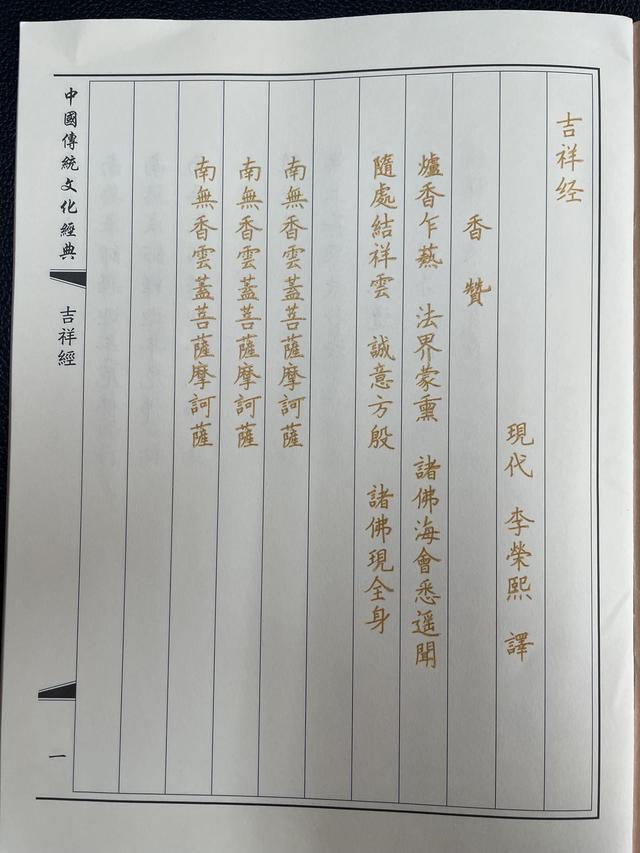 吉祥经
現代 李榮熙 譯
香 贊
爐香乍爇 法界蒙熏 諸佛海會悉遥聞
隨處結祥雲 誠意方殷 諸佛現全身
南無香雲蓋菩薩摩訶薩
南無香雲蓋菩薩摩訶薩
南無香雲蓋菩薩摩訶薩
中國傳統文化經典
吉祥經
一